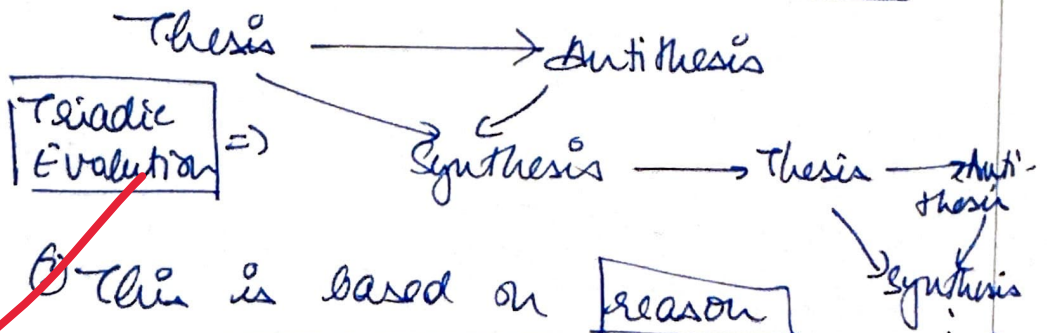 Thesis → Antithesis
Triadic
Evalution ⇒
Synthesis → Thesis → Anti-
thesis
Synthesis
This is based on reason